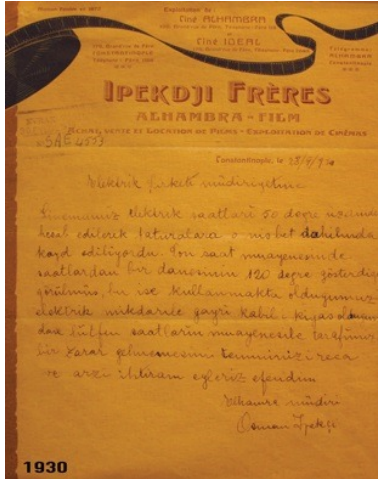 Exploitation de:
Ciné ALHAMBRA
et
Ciné IDEAL
CONSTANTINOPLE
IPEKDJI FRÈRES
ALHAMBRA-FILM
ACHAT, VENTE ET LOCATION DE FILMS - EXPLOITATION DE CINÉMAS
SAE 4553
Constantinople, le 28/4/930
Elektrik şirketi müdiriyetine
Sinemamız elektrik saatları 50 degre üzerinden
hesab edilerek faturalara o nisbet dahilinde
kayd ediliyordu. Son saat muayenesinde
saatlardan bir danesinin 120 degre gösterdiği
görülmüş, bu ise kullanmakta olduğumuz
elektrik mikdarile gayri kabil-i kıyas olduğundan
lütfen saatların muayenesile tarafımıza
bir zarar gelmemesini teminini reca
ve arzi ihtiram eyleriz efendim
Elhamra müdiri
Osman İpekçi
1930